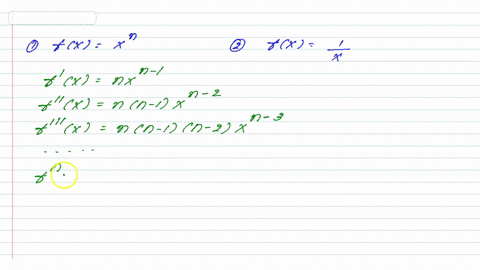 ① f(x) = xⁿ ② f(x) = 1/x
f'(x) = nxⁿ⁻¹
f''(x) = n(n-1)xⁿ⁻²
f'''(x) = n(n-1)(n-2)xⁿ⁻³
......